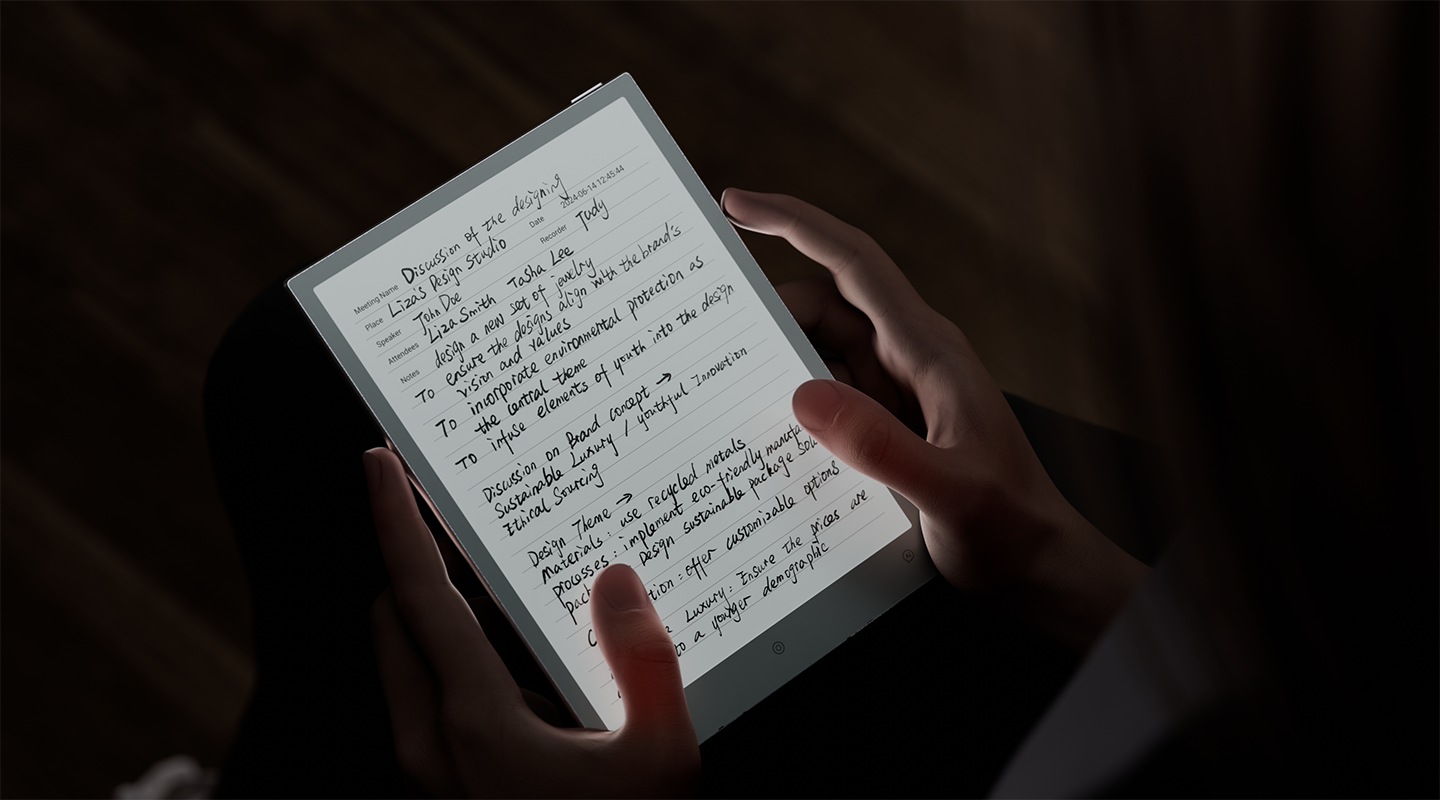 Meeting Name Discussion of the designing
Place Liza's Design Studio Date 2024-06-14 12:45:44
Speaker John Doe Recorder Judy
Attendees Liza Smith Tasha Lee
Notes design a new set of jewelry
To ensure the designs align with the brand's
vision and values
To incorporate environmental protection as
the central theme
To infuse elements of youth into the design
Discussion on Brand concept →
Sustainable Luxury / youthful Innovation
Ethical Sourcing
Design Theme →
materials: use recycled metals
processes: implement eco-friendly manufa
pack Design sustainable package sou
C tion: offer customizable options
Luxury: Ensure the prices are
to a younger demographic